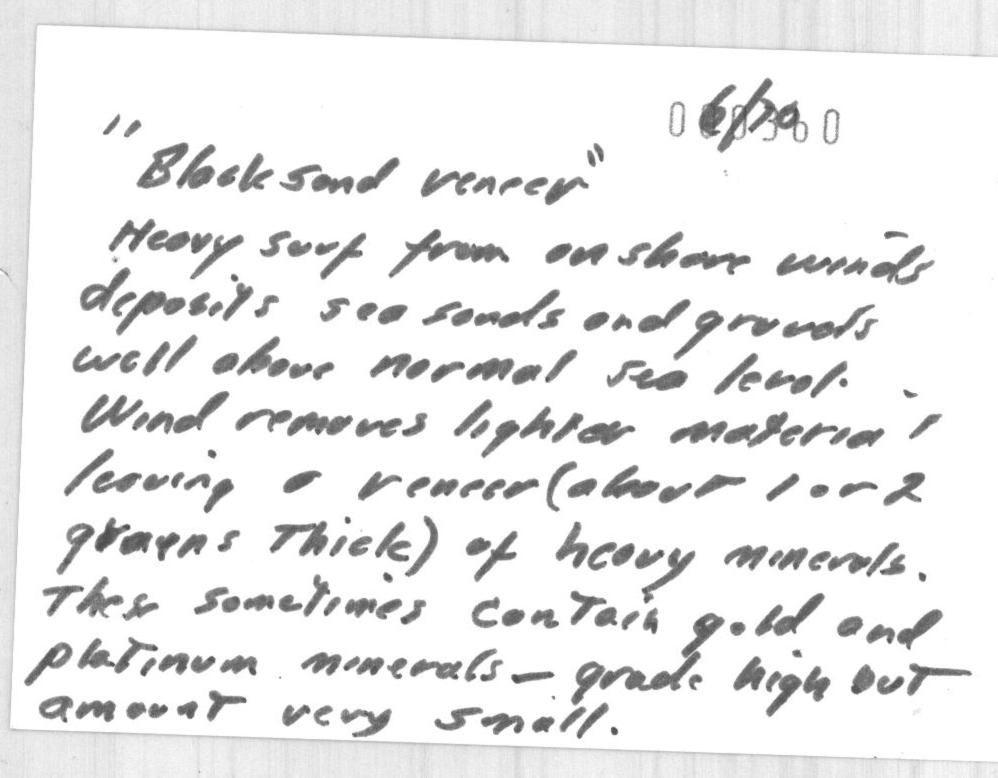 6/70
"Black sand veneer"
Heavy surf from on shore winds
deposits sea sands and gravels
well above normal sea level.
Wind removes lighter material
leaving a veneer (about 1 or 2
grayns Thick) of heavy minerals.
These sometimes contain gold and
platinum minerals — grade high but
amount very small.